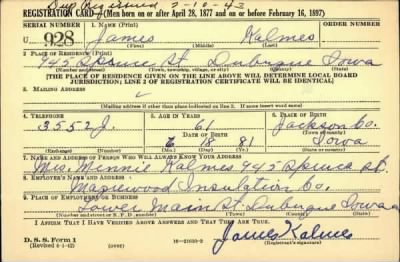 Dup Registered 2-10-43
REGISTRATION CARD—(Men born on or after April 28, 1877 and on or before February 16, 1897)
SERIAL NUMBER 1. NAME (Print)
U 928 James Kalmes
(First) (Middle) (Last)
2. PLACE OF RESIDENCE (Print)
945 Spruce St. Dubuque Iowa
(Number and street) (Town, township, village, or city) (County) (State)
[THE PLACE OF RESIDENCE GIVEN ON THE LINE ABOVE WILL DETERMINE LOCAL BOARD
JURISDICTION; LINE 2 OF REGISTRATION CERTIFICATE WILL BE IDENTICAL]
3. MAILING ADDRESS
[Mailing address if other than place indicated on line 2. If same insert word same]
4. TELEPHONE 5. AGE IN YEARS 6. PLACE OF BIRTH
3552 J. 61 Jackson Co.
DATE OF BIRTH (Town or county)
6 18 81 Iowa
(Exchange) (Number) (Mo.) (Day) (Yr.) (State or country)
7. NAME AND ADDRESS OF PERSON WHO WILL ALWAYS KNOW YOUR ADDRESS
Mrs. Minnie Kalmes 945 Spruce St.
8. EMPLOYER'S NAME AND ADDRESS
Maplewood Insulation Co.
9. PLACE OF EMPLOYMENT OR BUSINESS
Lower Main St. Dubuque Iowa
(Number and street or R. F. D. number) (Town) (County) (State)
I AFFIRM THAT I HAVE VERIFIED ABOVE ANSWERS AND THAT THEY ARE TRUE.
James Kalmes
D. S. S. Form 1
(Revised 4-1-42) (over) 16—21630-2 (Registrant's signature)